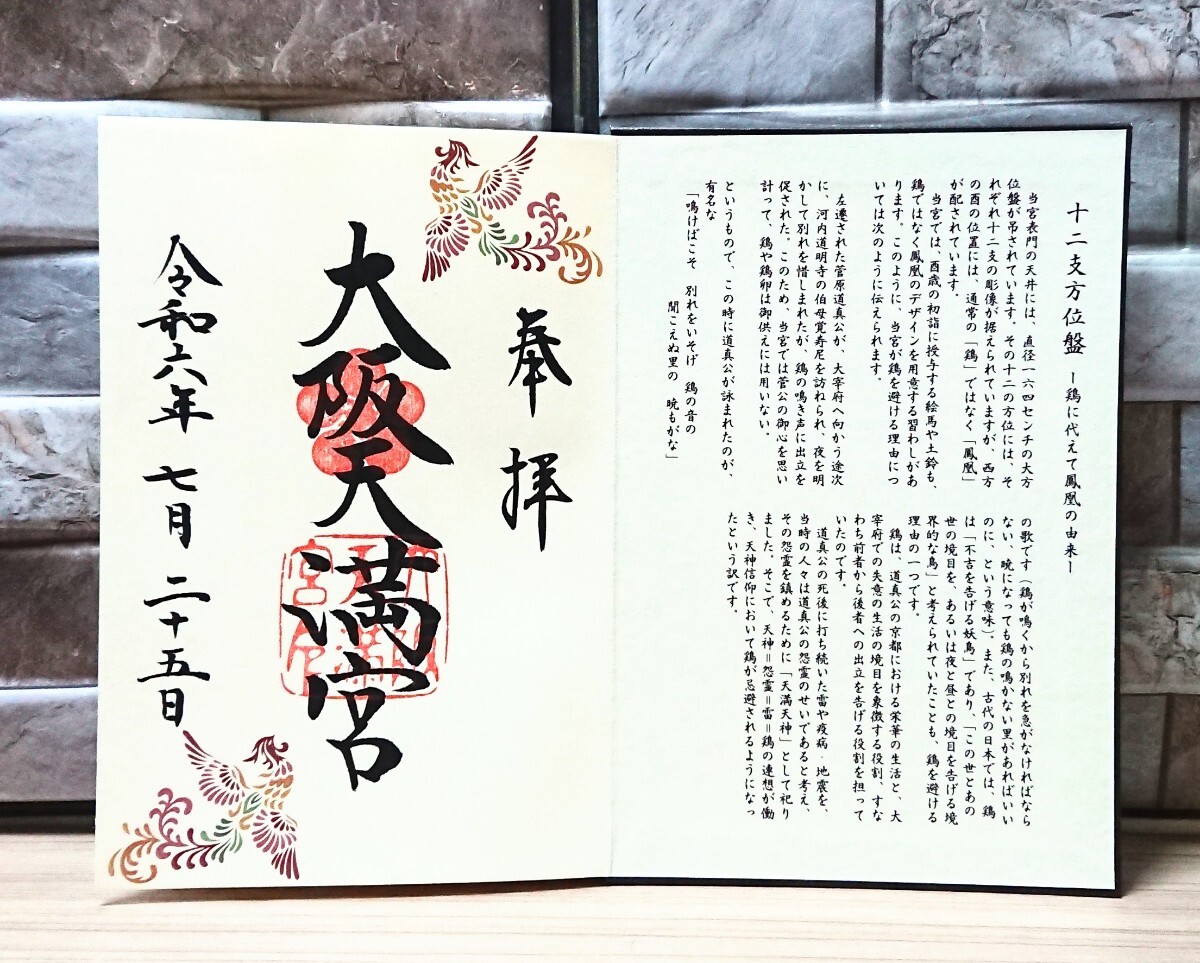 十二支方位盤 ー鶏に代えて鳳凰の由来ー
当宮表門の天井には、直径一六四センチの大方
位盤が吊されています。その十二の方位には、そ
れぞれ十二支の彫像が据えられていますが、西方
の酉の位置には、通常の「鶏」ではなく「鳳凰」
が配されています。
当宮では、酉歳の初詣に授与する絵馬や土鈴も、
鶏ではなく鳳凰のデザインを用意する習わしがあ
ります。このように、当宮が鶏を避ける理由につ
いては次のように伝えられます。
左遷された菅原道真公が、大宰府へ向かう途次
に、河内道明寺の伯母覚寿尼を訪ねられ、夜を明
かして別れを惜しまれたが、鶏の鳴き声に出立を
促された。このため、当宮では菅公の御心を思い
計って、鶏や鶏卵は御供えには用いない。
というもので、この時に道真公が詠まれたのが、
有名な
「鳴けばこそ 別れをいそげ 鶏の音の
聞こえぬ里の 暁もがな」
の歌です(鶏が鳴くから別れを急がなければなら
ない、暁になっても鶏の鳴かない里があればいい
のに、という意味)、また、古代の日本では、鶏
は「不吉を告げる妖鳥」であり、「この世とあの
世の境目を、あるいは夜と昼との境目を告げる境
界的な鳥」と考えられていたことも、鶏を避ける
理由の一つです。
鶏は、道真公の京都における栄華の生活と、大
宰府での失意の生活の境目を象徴する役割、すな
わち前者から後者への出立を告げる役割を担って
いたのです。
道真公の死後に打ち続いた雷や疫病・地震を、
当時の人々は道真公の怨霊のせいであると考え、
その怨霊を鎮めるために「天満天神」として祀り
ました。そこで、天神=怨霊=雷=鶏の連想が働
き、天神信仰において鶏が忌避されるようになっ
たという訳です。
奉拝
大阪天満宮
令和六年 七月 二十五日